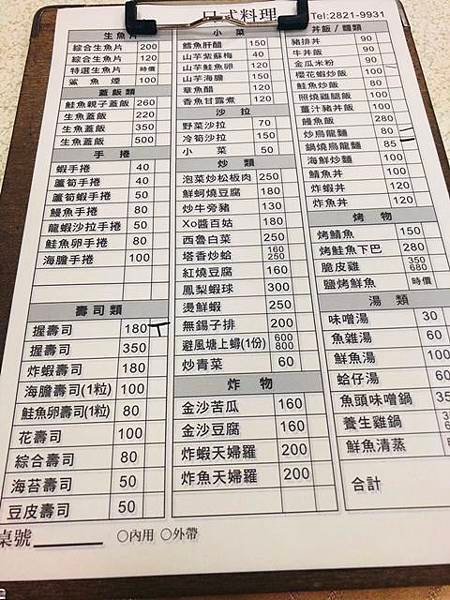 日式料理
Tel:2821-9931
生魚片
綜合生魚片 200
綜合生魚片 120
特選生魚片 時價
鯊魚煙 100
蓋飯類
鮭魚親子蓋飯 260
生魚蓋飯 220
生魚蓋飯 350
生魚蓋飯 500
手捲
蝦手捲 40
蘆筍手捲 40
蘆筍蝦手捲 50
鰻魚手捲 80
龍蝦沙拉手捲 50
鮭魚卵手捲 80
海膽手捲 100
壽司類
握壽司 180
握壽司 350
炸蝦壽司 180
海膽壽司(1粒) 100
鮭魚卵壽司(1粒) 80
花壽司 100
綜合壽司 80
海苔壽司 50
豆皮壽司 50
小菜
鱈魚肝醋 150
山芋紫蘇梅 40
山芋鮭魚卵 120
山芋海膽 150
章魚醋 120
香魚甘露煮 120
沙拉
野菜沙拉 70
冷筍沙拉 150
小菜 50
炒類
泡菜炒松板肉 250
鮮蚵燒豆腐 180
炒牛旁豬 130
Xo醬百姑 180
西魯白菜 250
塔香炒蛤 160 250
紅燒豆腐 160
鳳梨蝦球 300
燙鮮蝦 250
無錫子排 200
避風塘上蟳(1份) 600 800
炒青菜 60
炸物
金沙苦瓜 160
金沙豆腐 160
炸蝦天婦羅 200
炸魚天婦羅 200
丼飯/麵類
豬排丼 90
牛丼飯
金瓜米粉 90
櫻花蝦炒飯 100
鮭魚炒飯 80
照燒雞腿飯 100
薑汁豬丼飯 100
鰻魚飯 280
炒烏龍麵 80
鍋燒烏龍麵 85
海鮮炒麵 100
鯖魚丼 100
炸蝦丼 120
炸魚丼 120
烤物
烤鯖魚 150
烤鮭魚下巴 280
脆皮雞 350 680
鹽烤鮮魚 時價
湯類
味噌湯 30
魚雜湯 60
鮮魚湯 100
蛤仔湯 60
魚頭味噌鍋
養生雞鍋
鮮魚清蒸
合計
桌號
○內用 ○外帶